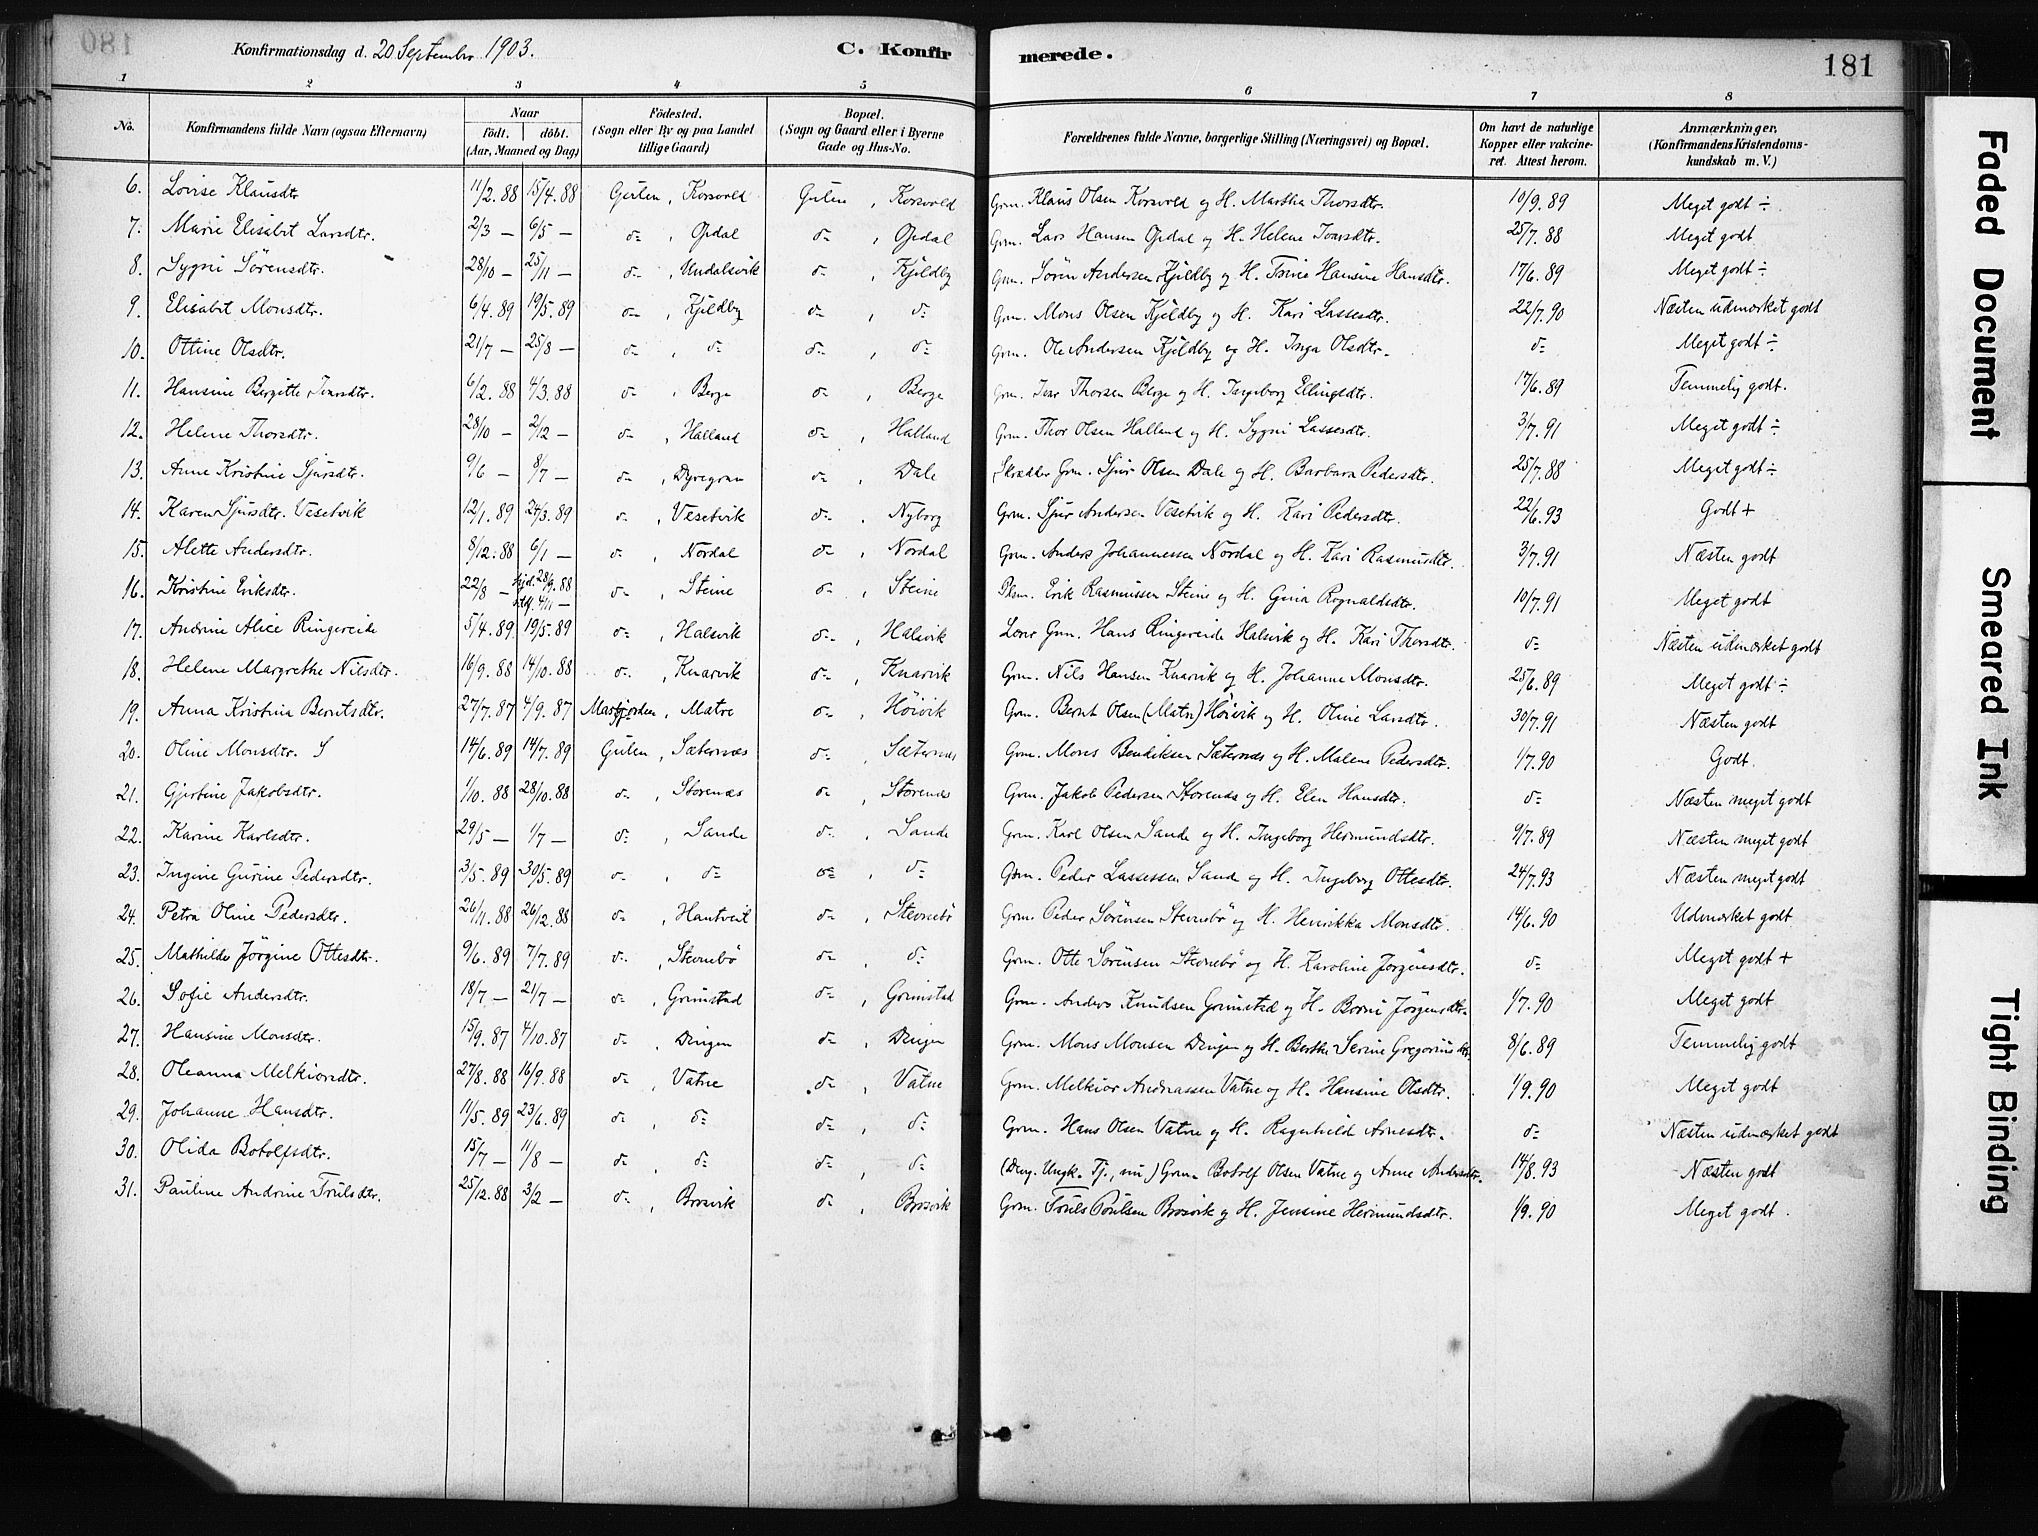 180
Konfirmationsdag d. 20 September 1903.
C. Konfirmerede.
181
1 2 3 4 5 6 7 8
No.
Konfirmandens fulde Navn (ogsaa Efternavn)
Naar
født. døbt.
(Aar, Maaned og Dag)
Födested.
(Sogn eller By og paa Landet
tillige Gaard)
Bopæl.
(Sogn og Gaard eller i Byerne
Gade og Hus-No.
Forældrenes fulde Navne, borgerlige Stilling (Næringsvei) og Bopæl.
Om havt de naturlige
Kopper eller vakcine-
ret. Attest herom.
Anmærkninger,
(Konfirmandens Kristendoms-
kundskab m. V.)
6. Lovise Klausdtr 11/2.88 15/4.88 Gulen, Korsvold Gulen, Korsvold Grm. Klaus Olsen Korsvold og H. Martha Thorsdtr. 10/9.89 Meget godt ÷
7. Marie Elisabet Larsdtr. 2/3 — 6/5 — d=, Opdal d=, Opdal Grm. Lars Hansen Opdal og H. Helene Ivarsdtr. 25/7.88 Meget godt
8. Sygni Sörensdtr. 28/10 — 25/11 — d=, Undalsvik d=, Kjeldby Grm. Sören Andersen Kjeldby og H. Trine Hansine Hansdtr. 17/6.89 Meget godt ÷
9. Elisabet Monsdtr. 6/4.89 19/5.89 d=, Kjeldby d=, d= Grm. Mons Olsen Kjeldby og H. Kari Lassesdtr. 22/7.90 Næsten udmærket godt
10. Ottine Olsdtr. 21/7 — 25/8 — d=, d= d=, d= Grm. Ole Andersen Kjeldby og H. Inga Olsdtr. d= Meget godt ÷
11. Hansine Bergitte Ivarsdtr. 6/2.88 4/3.88 d=, Berge d=, Berge Grm. Ivar Thorsen Berge og H. Ingeborg Ellingsdtr. 17/6.89 Temmelig godt.
12. Helene Thorsdtr. 28/10 — 2/12 — d=, Halland d=, Halland Grm. Thor Olsen Halland og H. Sygni Lassesdtr. 3/7.91 Meget godt ÷
13. Anne Kristine Sjursdtr. 9/6 — 8/7 — d=, Dyregrau d=, Dale Skrædder Grm. Sjur Olsen Dale og H. Barbara Pedersdtr. 25/7.88 Meget godt ÷
14. Karen Sjursdtr. Vesetvik 12/1.89 24/3.89 d=, Vesetvik d=, Nyborg Grm. Sjur Andersen Vesetvik og H. Kari Pedersdtr. 22/6.93 Godt +
15. Alette Andersdtr. 8/12.88 6/1 — d=, Nordal d=, Nordal Grm. Anders Johannessen Nordal og H. Kari Rasmusdtr. 3/7.91 Næsten godt
16. Kristine Eriksdtr. 22/8 — hjd. 28/9.88 d=, Steine d=, Steine Plsm. Erik Rasmussen Steine og H. Gina Rognaldsdtr. 10/7.91 Meget godt
stf. 4/11 —
17. Andrine Alice Ringereide 5/4.89 19/5.89 d=, Halsvik d=, Halsvik Grm. Hans Ringereide Halsvik og H. Kari Thorsdtr. d= Næsten udmærket godt
18. Helene Margrethe Nilsdtr. 16/9.88 14/10.88 d=, Knarvik d=, Knarvik Grm. Nils Hansen Knarvik og H. Johanne Monsdtr. 25/6.89 Meget godt ÷
19. Anna Kristina Berntsdtr. 27/7.87 4/9.87 Masfjorden, Matre d=, Höivik Grm. Bernt Olsen (Matre) Höivik og H. Oline Larsdtr. 30/7.91 Næsten godt
20. Oline Monsdtr. S 14/6.89 14/7.89 Gulen, Sæternæs d=, Sæternæs Grm. Mons Bendiksen Sæternæs og H. Malene Pedersdtr. 1/7.90 Godt.
21. Gjertine Jakobsdtr. 1/10.88 28/10.88 d=, Storenæs d=, Storenæs Grm. Jakob Pedersen Storenæs og H. Elen Hansdtr. d= Næsten meget godt
22. Karine Karlsdtr. 29/5 — 1/7 — d=, Sande d=, Sande Grm. Karl Olsen Sande og H. Ingeborg Hermundsdtr. 9/7.89 Næsten meget godt
23. Ingine Gurine Pedersdtr. 3/5.89 30/5.89 d=, d= d=, d= Grm. Peder Lassessen Sande og H. Ingeborg Ottesdtr. 24/7.93 Næsten meget godt
24. Petra Oline Pedersdtr. 26/11.88 26/12.88 d=, Hantveit d=, Stevnebö Grm. Peder Sörensen Stevnebö og H. Henrikka Monsdtr. 14/6.90 Udmærket godt
25. Mathilde Jörgine Ottesdtr. 9/6.89 7/7.89 d=, Stevnebö d=, d= Grm. Otte Sörensen Stevnebö og H. Karoline Jörgensdtr. d= Meget godt +
26. Sofie Andersdtr. 18/7 — 21/7 — d=, Grimstad d=, Grimstad Grm. Anders Knudsen Grimstad og H. Borni Jörgensdtr. 1/7.90 Meget godt
27. Hansine Monsdtr. 15/9.87 4/10.87 d=, Dingen d=, Dingen Grm. Mons Monsen Dingen og H. Berthe Serine Gregoriusdtr. 8/6.89 Temmelig godt
28. Oleanna Melkiorsdtr. 27/8.88 16/9.88 d=, Vatne d=, Vatne Grm. Melkior Andreassen Vatne og H. Hansine Olsdtr. 1/9.90 Meget godt
29. Johanne Hansdtr. 11/5.89 23/6.89 d=, d= d=, d= Grm. Hans Olsen Vatne og H. Ragenhild Arnesdtr. d= Næsten udmærket godt
30. Olida Botolfsdtr. 15/7 — 11/8 — d=, d= d=, d= (Den. Ungk. Tj., nu) Grm. Botolf Olsen Vatne og Anne Andersdtr. 14/8.93 Næsten godt
31. Pauline Andrine Trulsdtr. 25/12.88 3/2 — d=, Brosvik d=, Brosvik Grm. Truls Poulsen Brosvik og H. Jensine Hermundsdtr. 1/9.90 Meget godt.
Faded Document
Smeared Ink
Tight Binding